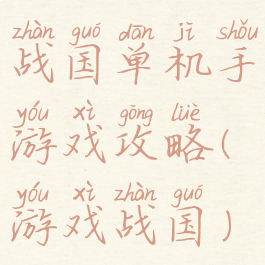 zhàn guó dān jī shǒu
战国单机手
yóu xì gōng lüè
游戏攻略(
yóu xì zhàn guó
游戏战国)